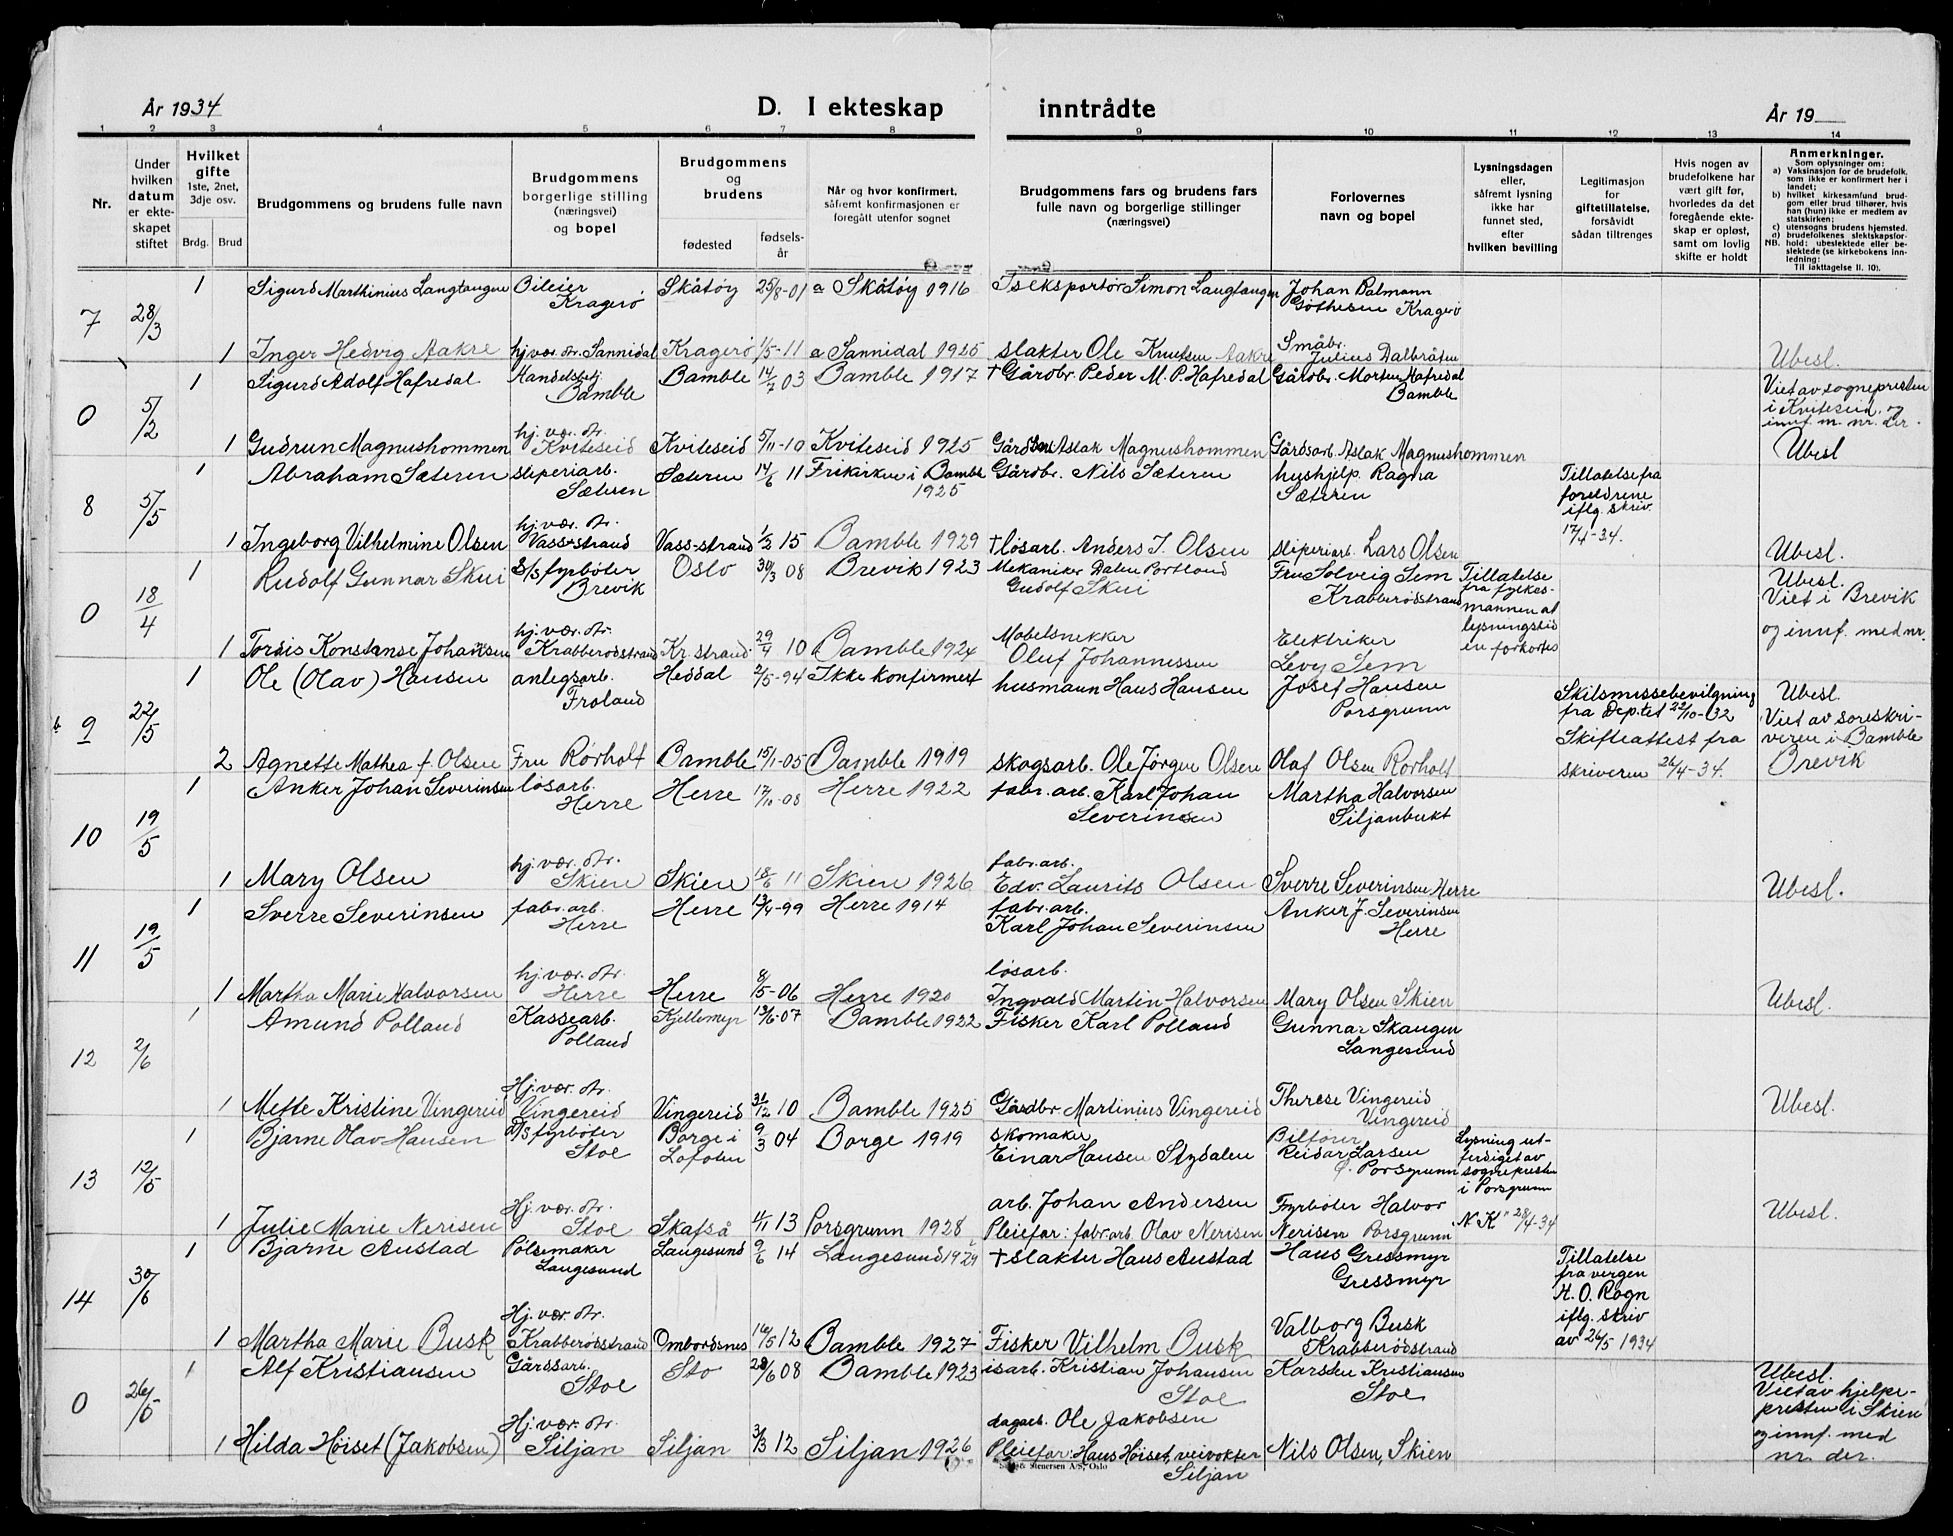 År 1934
D. I ekteskap inntrådte
År 19
1 2 3 4 5 6 7 8 9 10 11 12 13 14
Nr.
Under
hvilken
datum
er ekte-
skapet
stiftet
Hvilket
gifte
1ste, 2net,
3dje osv.
Brdg. Brud
Brudgommens og brudens fulle navn
Brudgommens
borgerlige stilling
(næringsvei)
og bopel
Brudgommens
og
brudens
fødested
fødsels-
år
Når og hvor konfirmert,
såfremt konfirmasjonen er
foregått utenfor sognet
Brudgommens fars og brudens fars
fulle navn og borgerlige stillinger
(næringsvei)
Forlovernes
navn og bopel
Lysningsdagen
eller,
såfremt lysning
ikke har
funnet sted,
efter
hvilken bevilling
Legitimasjon
for
giftetillatelse,
forsåvidt
sådan tiltrenges
Hvis nogen av
brudefolkene har
vært gift før,
hvorledes da det
foregående ekte-
skap er opløst,
samt om lovlig
skifte er holdt
Anmerkninger.
Som oplysninger om:
a) Vaksinasjon for de brudefolk,
som ikke er konfirmert her i
landet;
b) hvilket kirkesamfund brud-
gom eller brud tilhører, hvis
han (hun) ikke er medlem av
statskirken;
c) utensogns brudens hjemsted.
d) brudefolkenes slektskapsfor-
NB. hold: ubeslektede eller be-
slektede (se kirkebokens inn-
ledning:
Til iakttagelse II. 10).
7 28/3
1 Sigurd Marthinius Langtangen Bileier Kragerø Skåtøy 25/8-01 a Skåtøy 1916 Iseksportør Simon Langtangen Johan Balmann Gøthesen Kragerø
1 Inger Hedvig Aakre hj.vær. dtr. Sannidal Kragerø 1/5-11 a Sannidal 1925 slakter Ole Knutsen Aakre Småbr. Julius Dalbråten Ubesl.
0 5/2
1 Sigurd Adolf Hafredal Handelsbetj. Bamble Bamble 14/7 03 Bamble 1917 † Gårdbr. Peder M. P. Hafredal Gårdbr. Morten Hafredal Bamble Viet av sognepresten i Kviteseid og innf. m. nr. der.
1 Gudrun Magnushommen hj. vær. dtr. Kviteseid Kviteseid 5/11-10 Kviteseid 1925 Aslak Magnushommen Gårdsarb. Aslak Magnushommen Ubesl
8 5/5
1 Abraham Sæteren sliperiarb. Sæteren Sæteren 14/6 11 Frikirken i Bamble 1925 Gårdbr. Nils Sæteren hushjelp. Ragna Sæteren Tillatelse fra foreldrene iflg. skriv 17/4-34.
1 Ingeborg Vilhelmine Olsen hj. vær. dtr. Vass-strand Vass-strand 1/2 15 Bamble 1929 † løsarb. Anders J. Olsen sliperiarb. Lars Olsen Ubesl.
0 18/4
1 Rudolf Gunnar Skui D/S fyrbøter Brevik Oslo 30/3 08 Brevik 1923 Mekaniker Dalen Portland Gudolf Skui Fru Solveig Sem Krabberødstrand Tillatelse fra fylkesmannen at lysningstiden forkortes Ubesl. Viet i Brevik og innf. med nr.
1 Tordis Konstanse Johansen hj. vær. dtr. Krabberødstrand Kr. strand 29/4 10 Bamble 1924 Møbelsnekker Oluf Johannessen Elektriker Levy Sem
9 22/5
1 Ole (Olav) Hansen anlegsarb. Froland Heddal 2/5-94 Ikke konfirmert husmann Hans Hansen Josef Hansen Porsgrunn Skilsmissebevilgning fra Dep.tet 22/10-32 Skifteattest fra skriveren 26/4-34. Ubesl. Viet av soreskriveren i Bamble Brevik
2 Agnette Mathea f. Olsen Fru Rørholt Bamble 15/1-05 Bamble 1919 skogsarb. Ole Jørgen Olsen Olaf Olsen Rørholt
10 19/5
1 Anker Johan Severinsen løsarb. Herre Herre 17/10-08 Herre 1922 fabr. arb. Karl Johan Severinsen Martha Halvorsen Siljanbukt
1 Mary Olsen hj. vær. dtr. Skien Skien 18/6 11 Skien 1926 fabr.arb. Edv. Laurits Olsen Sverre Severinsen Herre Ubesl.
11 19/5
1 Sverre Severinsen fabr. arb. Herre Herre 13/4-99 Herre 1914 fabr. arb. Karl Johan Severinsen Anker J. Severinsen Herre
1 Martha Marie Halvorsen hj. vær. dtr. Herre Herre 8/5-06 Herre 1920 løsarb. Ingvald Martin Halvorsen Mary Olsen Skien Ubesl.
12 2/6
1 Amund Polland Kassearb. Polland Kjellemyr 13/6-07 Bamble 1922 Fisker Karl Polland Gunnar Skaugen Langesund
1 Mette Kristine Vingereid Hj. vær. dtr. Vingereid Vingereid 31/12 10 Bamble 1925 Gårdbr Martinius Vingereid Therese Vingereid Vingereid Ubesl.
13 12/5
1 Bjarne Olav Hansen D/S fyrbøter Stoe Borge i Lofoten 9/3 04 Borge 1919 skomaker Einar Hansen Stydalen Bilfører Reidar Larsen Porsgrunn Lysning utferdiget av sognepresten i Porsgrunn N. K. 28/4-34
1 Julie Marie Nerisen Hj. vær. dtr. Stoe Skafså 1/11 13 Porsgrunn 1928 arb. Johan Andersen Pleiefar: fabr.arb. Olav Nerisen Fyrbøter Halvor Nerisen Porsgrunn Ubesl.
14 30/6
1 Bjarne Austad Pølsemaker Langesund Langesund 9/6 14 Langesund 1929 † slakter Hans Austad Hans Gressmyr Gressmyr Tillatelse fra vergen H. O. Rogn iflg. skriv av 26/5 1934
1 Martha Marie Busk Hj. vær. dtr. Krabberødstrand Ombordsnes 16/5 12 Bamble 1927 Fisker Vilhelm Busk Valborg Busk Krabberødstrand
0 26/5
1 Alf Kristiansen Gårdsarb. Stoe Sto 28/6 08 Bamble 1923 isarb. Kristian Johansen Stoe Karsten Kristiansen Stoe Ubesl. Viet av hjelpepresten i Skien og innf. med nr. der.
1 Hilda Høiset (Jakobsen) Hj. vær. dtr. Siljan Siljan 3/3 12 Siljan 1926 dagarb. Ole Jakobsen Pleiefar: Hans Høiset, veivokter Siljan Nils Olsen, Skien
& Stenersen A/S, Oslo